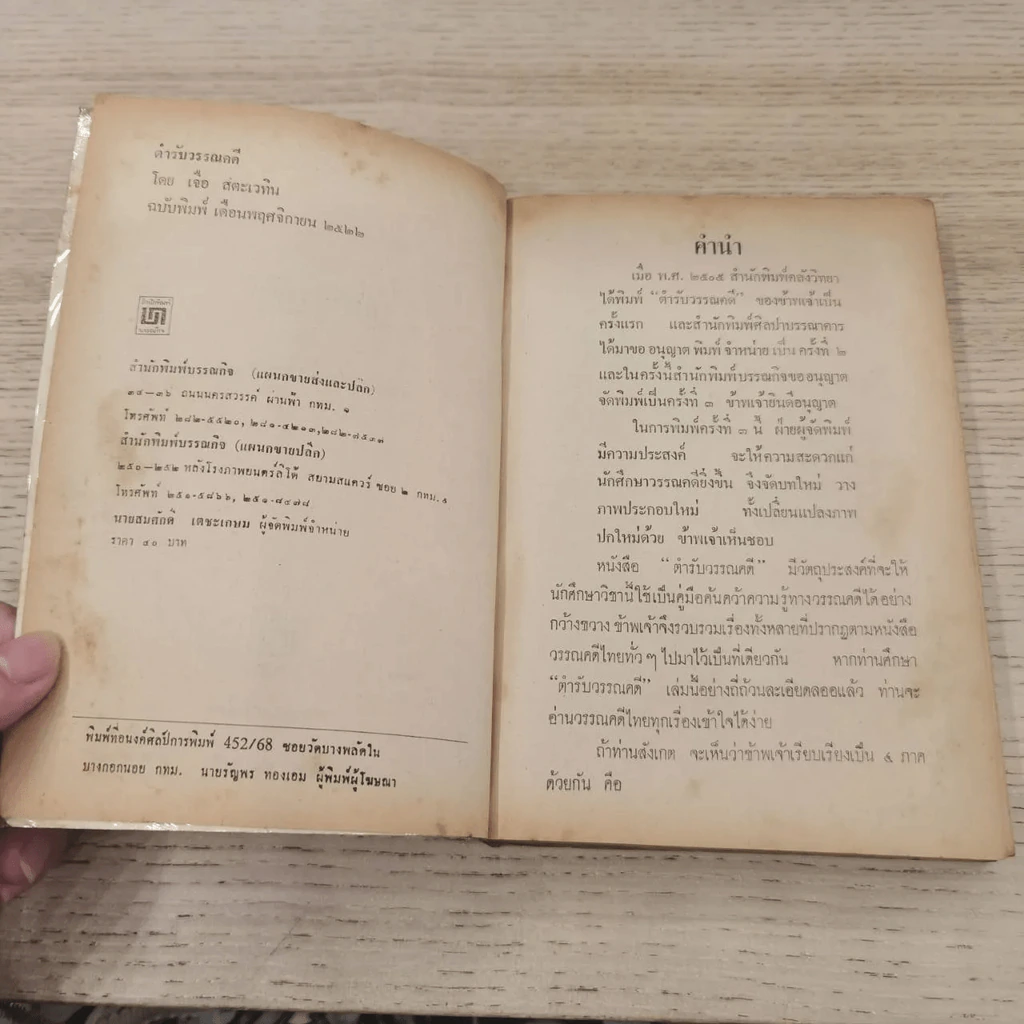 ตำรับวรรณคดี
โดย เจือ สตะเวทิน
ฉบับพิมพ์ เดือนพฤศจิกายน ๒๕๒๒
สำนักพิมพ์บรรณกิจ (แผนกขายส่งและปลีก)
๓๔—๓๖ ถนนนครสวรรค์ ผ่านฟ้า กทม. ๑
โทรศัพท์ ๒๘๒-๕๕๒๐, ๒๘๑-๔๒๑๓,๒๘๒-๗๕๓๗
สำนักพิมพ์บรรณกิจ (แผนกขายปลีก)
๒๕๐—๒๕๒ หลังโรงภาพยนตร์ลิโด้ สยามสแควร์ ซอย ๒ กทม. ๕
โทรศัพท์ ๒๕๑-๕๘๖๖, ๒๕๑-๘๔๗๘
นายสมศักดิ์ เตชะเกษม ผู้จัดพิมพ์จำหน่าย
ราคา ๔๐ บาท
พิมพ์ที่อนงค์ศิลป์การพิมพ์ 452/68 ซอยวัดบางพลัดใน
บางกอกน้อย กทม. นายรัญพร ทองเอม ผู้พิมพ์ผู้โฆษณา
คำนำ
เมื่อ พ.ศ. ๒๕๐๕ สำนักพิมพ์คลังวิทยา
ได้พิมพ์ “ตำรับวรรณคดี” ของข้าพเจ้าเป็น
ครั้งแรก และสำนักพิมพ์ศิลปาบรรณาคาร
ได้มาขอ อนุญาต พิมพ์ จำหน่าย เป็น ครั้งที่ ๒
และในครั้งนี้สำนักพิมพ์บรรณกิจขออนุญาต
จัดพิมพ์เป็นครั้งที่ ๓ ข้าพเจ้ายินดีอนุญาต
ในการพิมพ์ครั้งที่ ๓ นี้ ฝ่ายผู้จัดพิมพ์
มีความประสงค์ จะให้ความสะดวกแก่
นักศึกษาวรรณคดียิ่งขึ้น จึงจัดบทใหม่ วาง
ภาพประกอบใหม่ ทั้งเปลี่ยนแปลงภาพ
ปกใหม่ด้วย ข้าพเจ้าเห็นชอบ
หนังสือ “ตำรับวรรณคดี” มีวัตถุประสงค์ที่จะให้
นักศึกษาวิชานี้ใช้เป็นคู่มือค้นคว้าความรู้ทางวรรณคดีได้อย่าง
กว้างขวาง ข้าพเจ้าจึงรวบรวมเรื่องทั้งหลายที่ปรากฏตามหนังสือ
วรรณคดีไทยทั่ว ๆ ไปมาไว้เป็นที่เดียวกัน หากท่านศึกษา
“ตำรับวรรณคดี” เล่มนี้อย่างถี่ถ้วนละเอียดลออแล้ว ท่านจะ
อ่านวรรณคดีไทยทุกเรื่องเข้าใจได้ง่าย
ถ้าท่านสังเกต จะเห็นว่าข้าพเจ้าเรียบเรียงเป็น ๕ ภาค
ด้วยกัน คือ